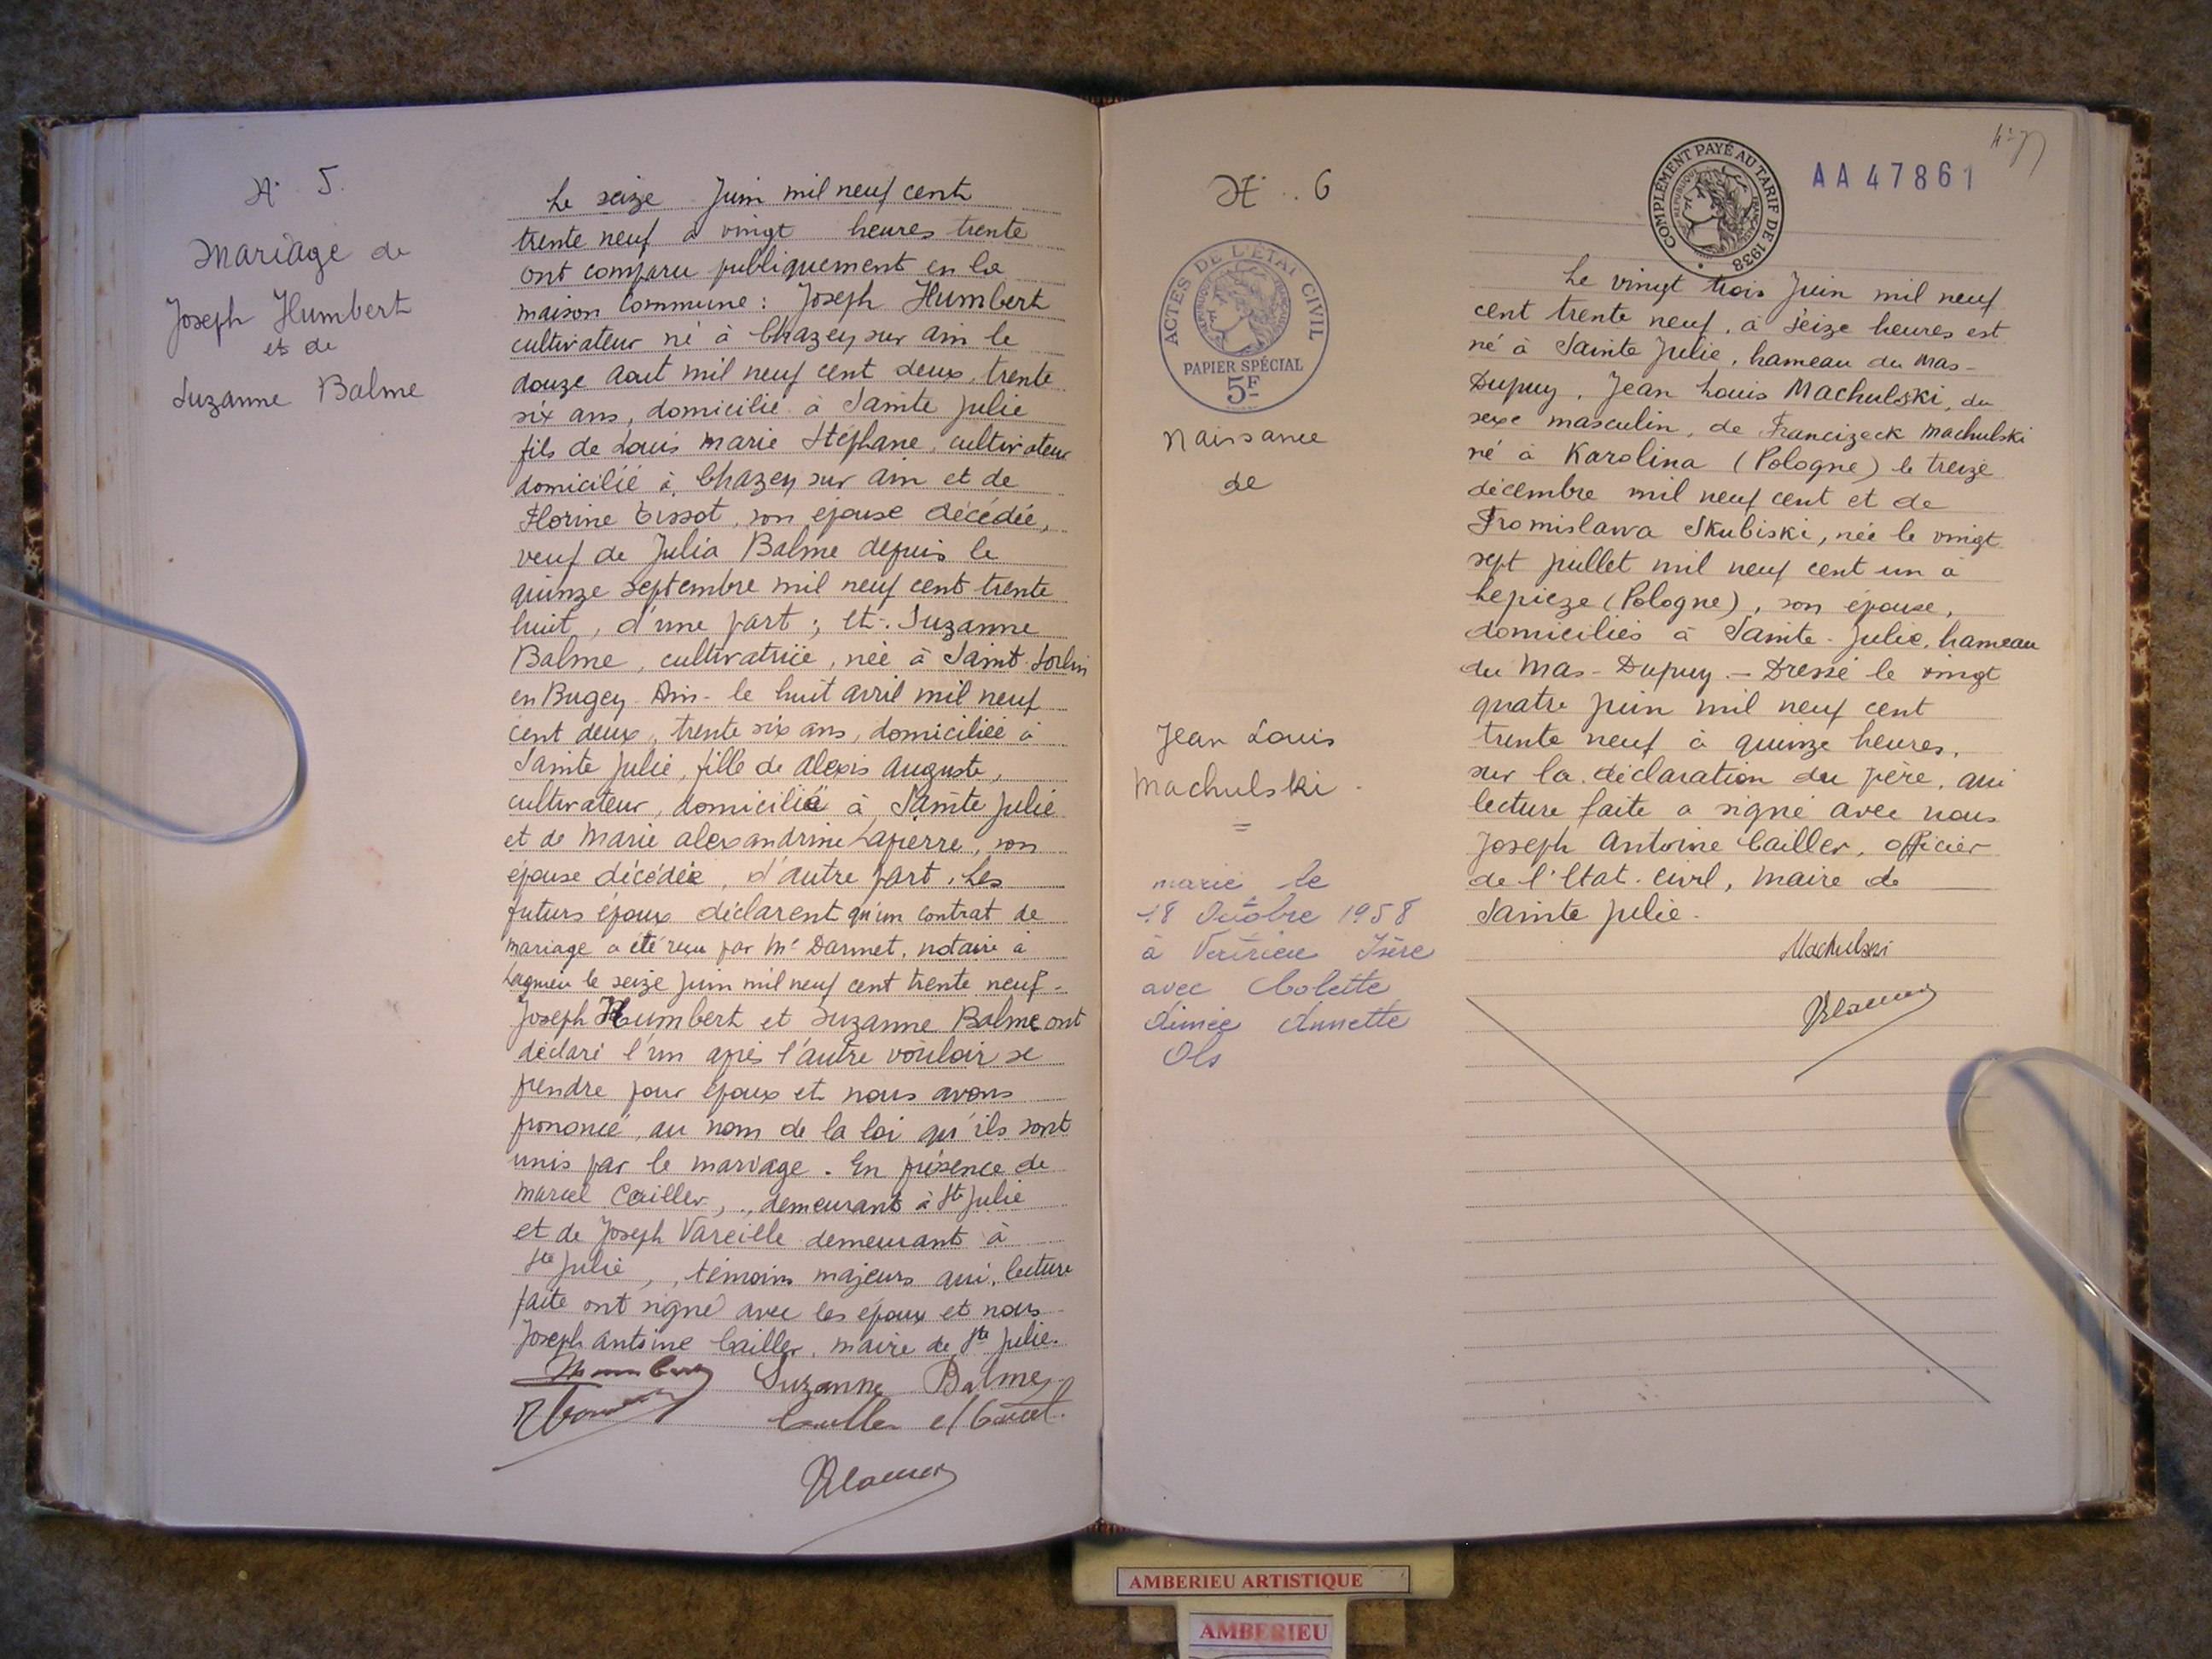 N° 5.
Mariage de
Joseph Humbert
et de
Suzanne Balme
Le seize Juin mil neuf cent
trente neuf à vingt heures trente
ont comparu publiquement en la
maison Commune : Joseph Humbert
cultivateur né à Chazey sur Ain le
douze Aout mil neuf cent deux, trente
six ans, domicilié à Sainte Julie
fils de Louis Marie Stéphane, cultivateur
domicilié à Chazey sur Ain et de
Florine Tissot, son épouse décédée,
veuf de Julia Balme depuis le
quinze septembre mil neuf cent trente
huit, d'une part ; et Suzanne
Balme, cultivatrice, née à Saint Sorlin
en Bugey Ain - le huit avril mil neuf
cent deux, trente six ans, domiciliée à
Sainte Julie, fille de Alexis Auguste,
cultivateur, domicilié à Sainte Julie
et de Marie Alexandrine Lapierre, son
épouse décédée, d'autre part. Les
futurs époux déclarent qu'un contrat de
mariage a été reçu par Me Darmet, notaire à
Lagnieu le seize juin mil neuf cent trente neuf -
Joseph Humbert et Suzanne Balme ont
déclaré l'un après l'autre vouloir se
prendre pour époux et nous avons
prononcé, au nom de la loi qu'ils sont
unis par le mariage. En présence de
Marcel Cailler, demeurant à Ste Julie
et de Joseph Vareille demeurant à
Ste Julie, témoins majeurs qui, lecture
faite ont signé avec les époux et nous
Joseph Antoine Cailler, maire de Ste Julie.
Humbert Suzanne Balme
Cailler
N° 6
ACTES DE L'ÉTAT CIVIL
RÉPUBLIQUE FRANÇAISE
PAPIER SPÉCIAL
5F
Naissance
de
Jean Louis
Machulski.
marié le
18 Octobre 1958
à Vertrieu Isère
avec Colette
Aimée Annette
Ols
COMPLÉMENT PAYÉ AU TARIF DE 1938
RÉPUBLIQUE FRANÇAISE
AA47861
Le vingt trois Juin mil neuf
cent trente neuf, à seize heures est
né à Sainte Julie, hameau du Mas-
Dupuy, Jean Louis Machulski, du
sexe masculin, de Francizeck Machulski
né à Karolina (Pologne) le treize
décembre mil neuf cent et de
Fromislawa Skubiski, née le vingt
sept juillet mil neuf cent un à
Lepieze (Pologne), son épouse,
domiciliés à Sainte-Julie, hameau
du Mas-Dupuy. - Dressé le vingt
quatre juin mil neuf cent
trente neuf à quinze heures,
sur la déclaration du père, qui
lecture faite a signé avec nous
Joseph Antoine Cailler, officier
de l'Etat-Civil, Maire de
Sainte Julie.
Machulski
AMBERIEU ARTISTIQUE
AMBERIEU